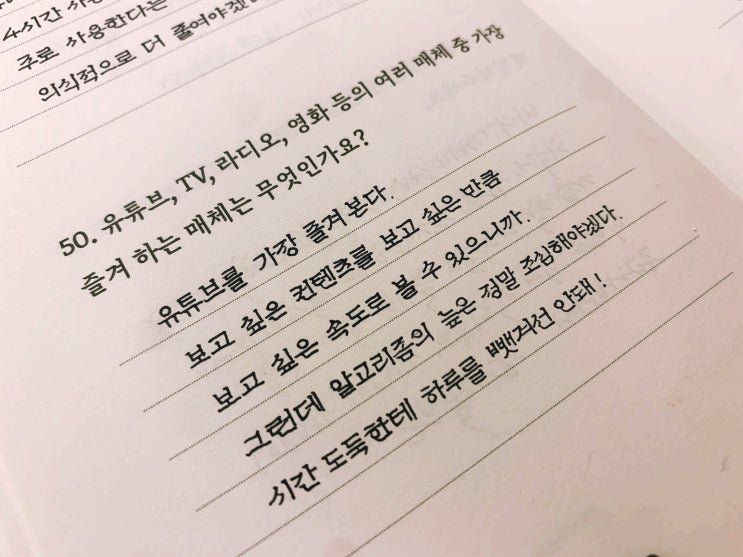 4시간 사용
주로 사용한다는
의식적으로 더 줄여야겠
50. 유튜브, TV, 라디오, 영화 등의 여러 매체 중 가장
즐겨 하는 매체는 무엇인가요?
유튜브를 가장 즐겨 본다.
보고 싶은 컨텐츠를 보고 싶은 만큼
보고 싶은 속도로 볼 수 있으니까.
그런데 알고리즘의 늪은 정말 조심해야겠다.
시간 도둑한테 하루를 뺏겨선 안돼!